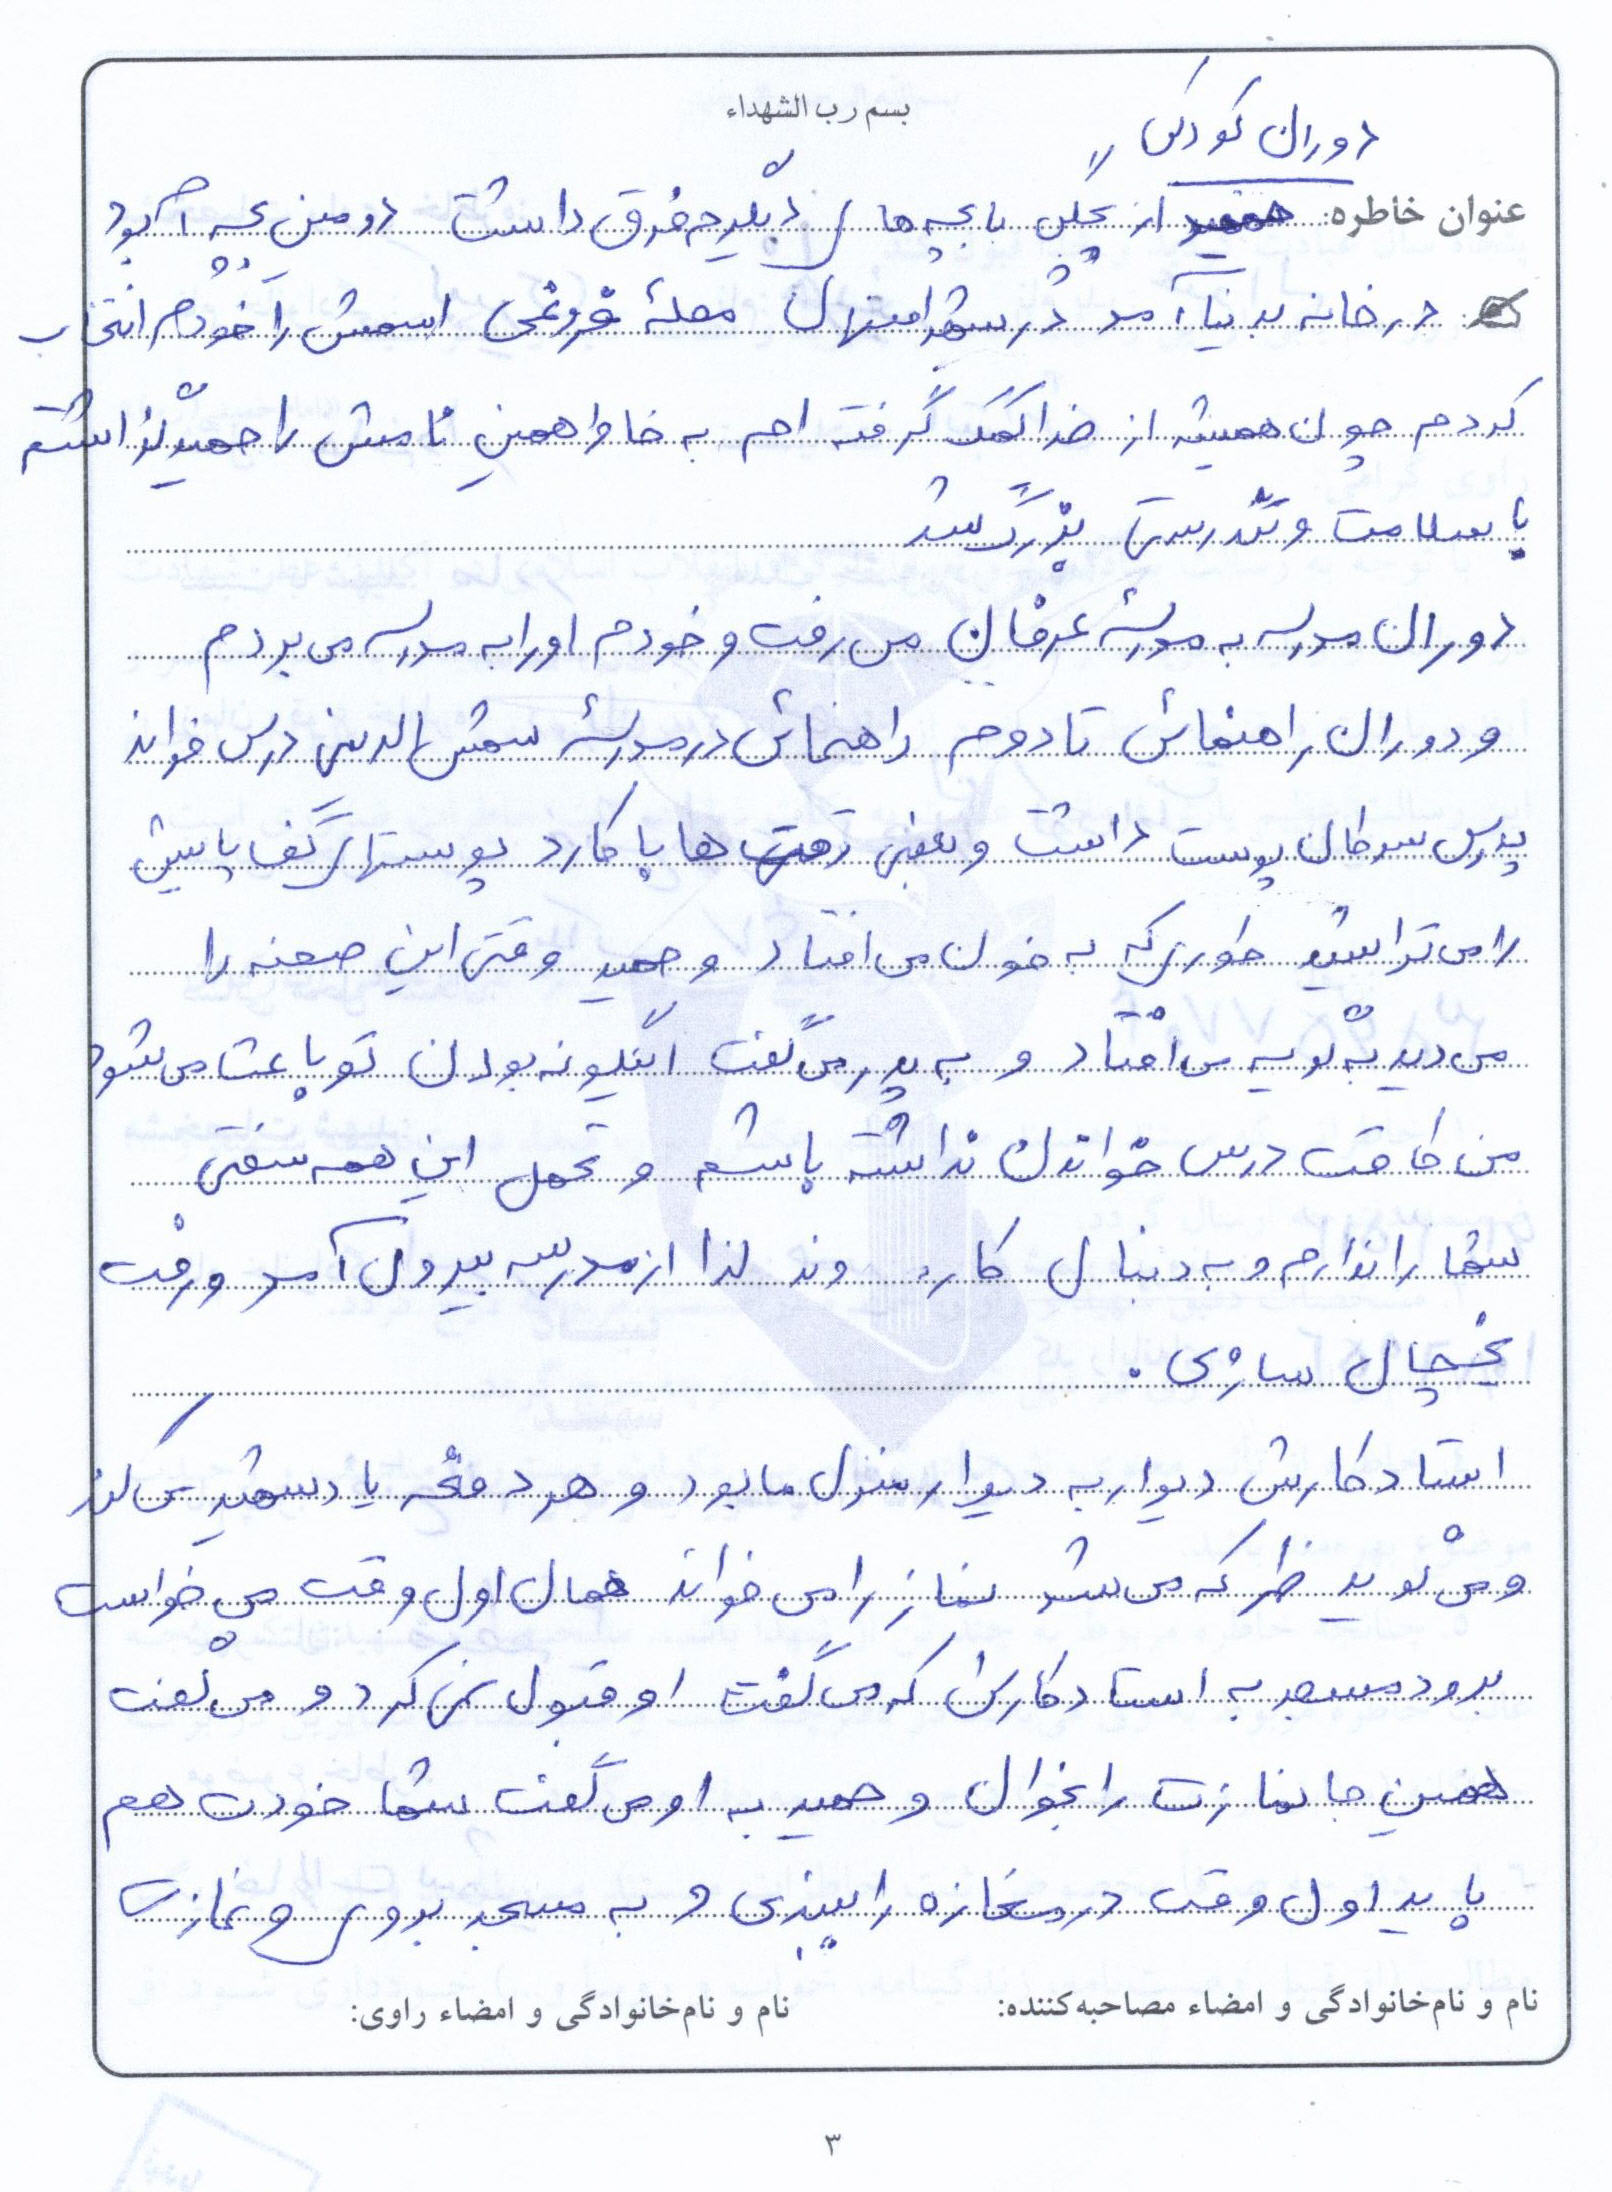 بسم رب الشهداء
دوران کودکی "
عنوان خاطره: حمید از بچگی با بچه ها ی دیگرم فرق داشت دومین بچه ام بود
در خانه بدنیا آمد در شهر اصفهان محلهٔ فروغی اسمش را خودم انتخاب
کردم چون همیشه از خدا کمک گرفته ام به خاطر همین نامش را حمید گذاشتم
با سلامت و تندرستی بزرگ شد
دوران مدرسه به مدرسهٔ عرفان می رفت و خودم او را به مدرسه می بردم
و دوران راهنمائی تا دوم راهنمائی در مدرسهٔ شمس الدین درس خواند
پدرش سرطان پوست داشت و بعضی وقت ها با کارد پوستهای کف پایش
را می تراشید طوری که به خون می افتاد و حمید وقتی این صحنه را
می دید به گریه می افتاد و به پدر می گفت اینگونه بودن تو باعث می شود
من طاقت درس خواندن نداشته باشم و تحمل این همه سختی
شما را ندارم و به دنبال کار روند لذا از مدرسه بیرون آمد و رفت
یخچال سازی .
استاد کارش دیوار به دیوار منزل ما بود و هر دفعه یاد شهید می کند
و می گوید ظهر که می شد نماز را می خواند همان اول وقت می خواست
برود مسجد به استاد کارش که می گفت او قبول نمی کرد و می گفت
همین جا نمازت را بخوان و حمید به او می گفت شما خودت هم
باید اول وقت در مغازه را ببندی و به مسجد بروی و نمازت
نام و نام‌خانوادگی و امضاء مصاحبه‌کننده:
نام و نام‌خانوادگی و امضاء راوی:
۳